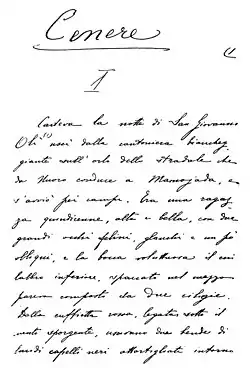 Cenere
(1
I
Cadeva la notte di San Giovanni.
Olì (1) uscì dalla cantoniera biancheg
giante sull'orlo dello stradale che
da Nuoro conduce a Mamojada, e
s'avviò pei campi. Era una ragaz
za quindicenne, alta e bella, con due
grandi occhi felini, glauchi e un po'
obliqui, e la bocca voluttuosa il cui
labbro inferiore, spaccato nel mezzo
pareva composto da due ciliegie.
Dalla cuffietta rossa, legata sotto il
mento sporgente, uscivano due bende di
lucidi capelli neri attortigliati intorno